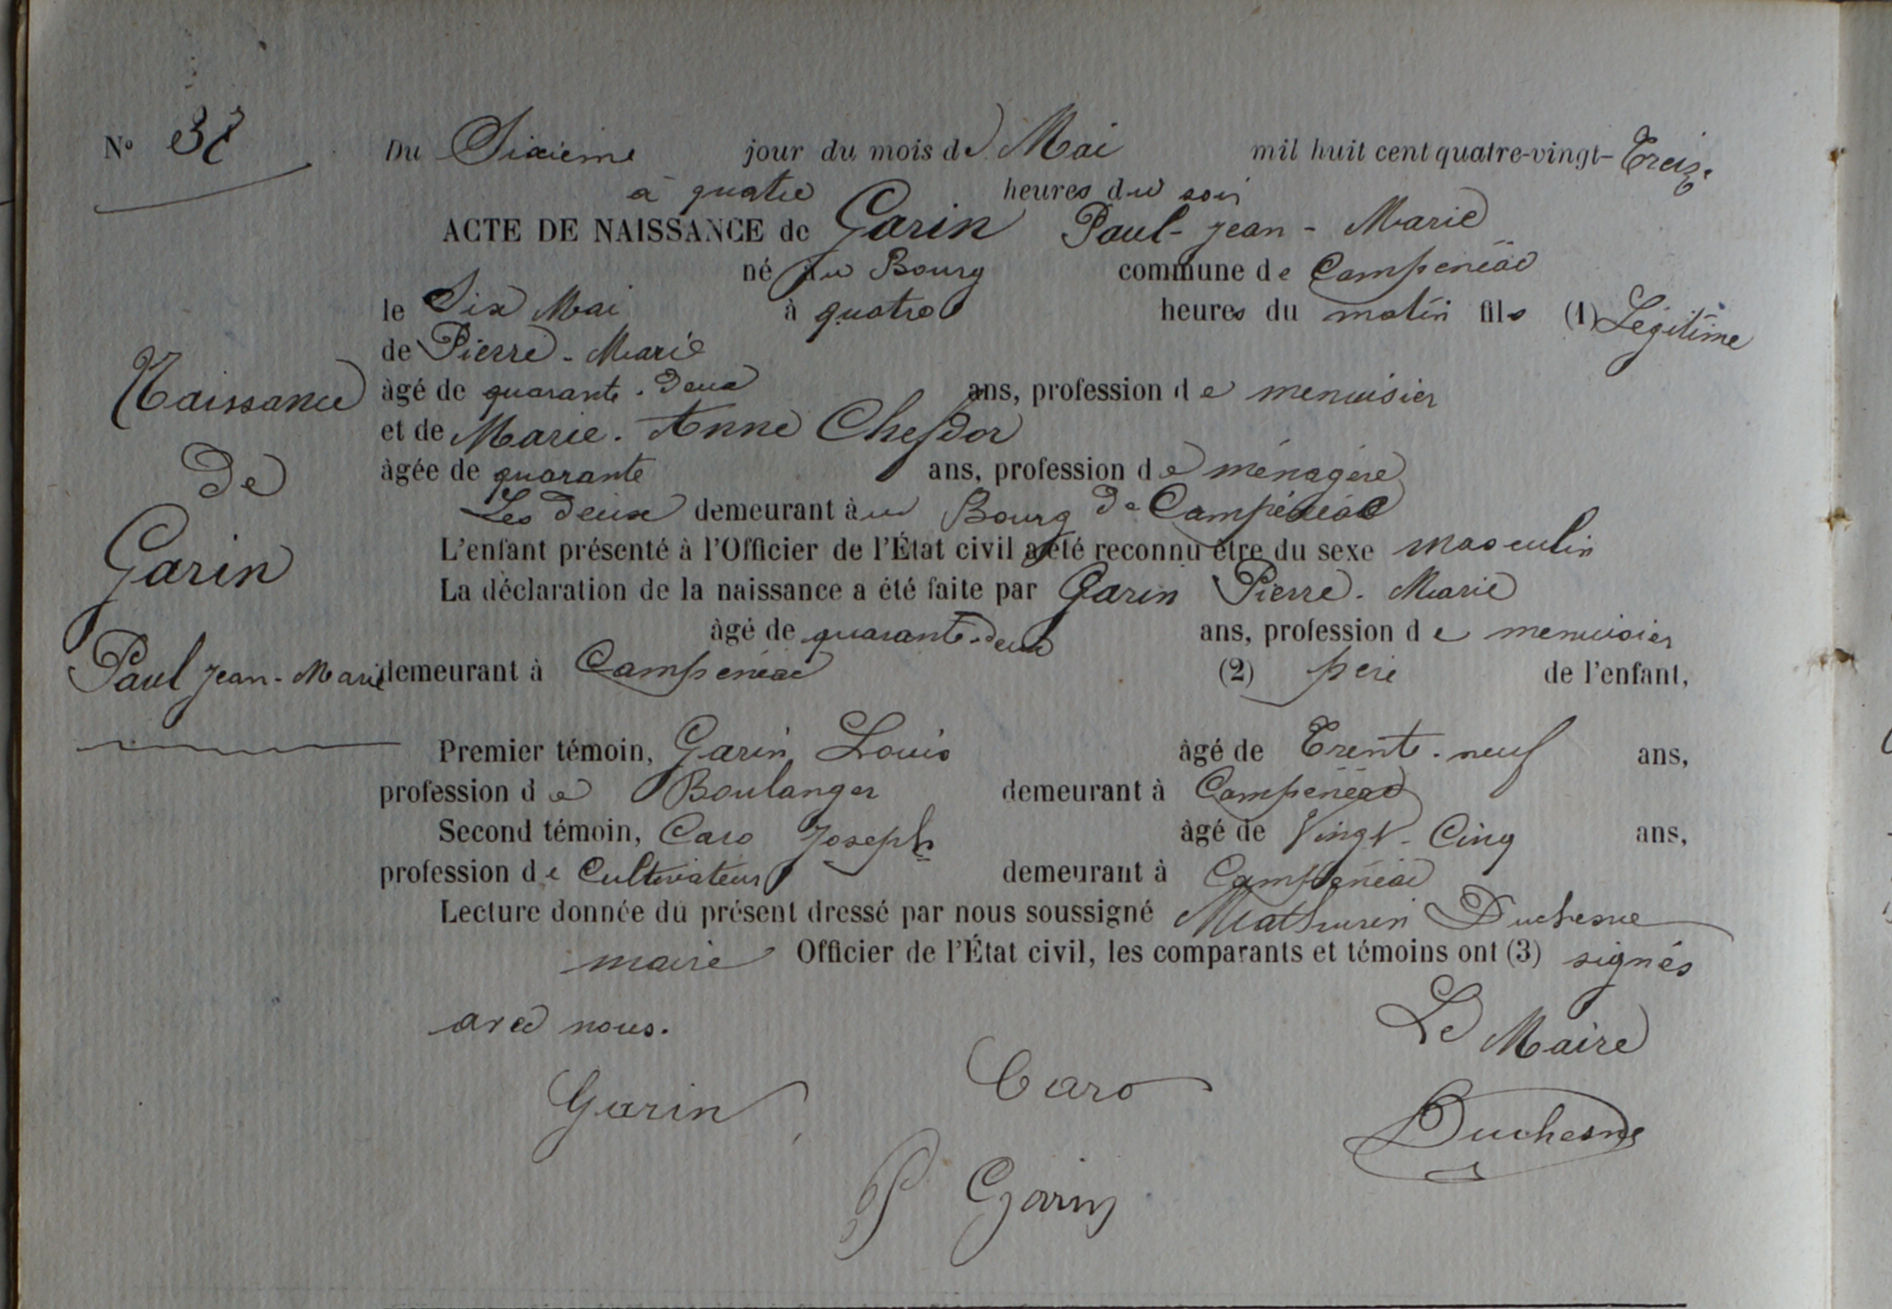 N° 38
Du Sixième jour du mois de Mai mil huit cent quatre-vingt-Treize
à quatre heures du soir
ACTE DE NAISSANCE de Garin Paul-Jean-Marie
né au Bourg commune de Campénéac
le Six Mai à quatre heures du matin fils (1) Légitime
de Pierre-Marie
âgé de quarante-deux ans, profession de menuisier
et de Marie-Anne Chefdor
âgée de quarante ans, profession de ménagère
Les deux demeurant au Bourg de Campénéac
L'enfant présenté à l'Officier de l'État civil a été reconnu être du sexe masculin
La déclaration de la naissance a été faite par Garin Pierre-Marie
âgé de quarante-deux ans, profession de menuisier
demeurant à Campénéac (2) père de l'enfant,
Premier témoin, Garin Louis âgé de Trente-neuf ans,
profession de Boulanger demeurant à Campénéac
Second témoin, Caro Joseph âgé de Vingt-Cinq ans,
profession de Cultivateur demeurant à Campénéac
Lecture donnée du présent dressé par nous soussigné Mathurin Duchesne
maire Officier de l'État civil, les comparants et témoins ont (3) signés
avec nous.
Le Maire
Garin Caro Duchesne
P Garin
Naissance
de
Garin
Paul Jean-Marie